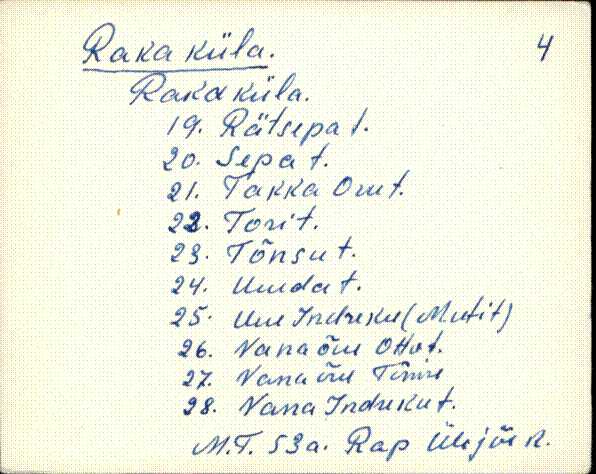 Raka küla. 4
Raka küla.
19. Rätsepat.
20. Sepat.
21. Takka Orut.
22. Torit.
23. Tõnsut.
24. Uudat.
25. Uue Indreku (Mutit)
26. Vanaõue Ottot.
27. Vanaõue Tõnise
28. Vana Indrekut.
M.T. 53a. Rap